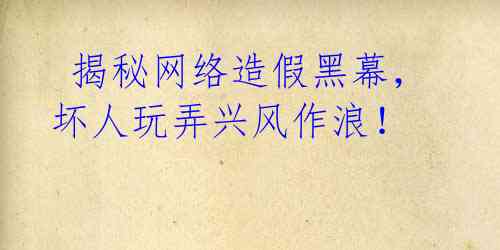 揭秘网络造假黑幕，
坏人玩弄兴风作浪！